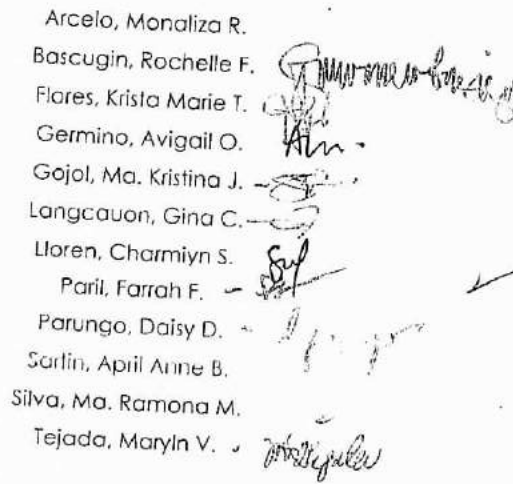 Arcelo, Monaliza R.
Bascugin, Rochelle F.
Flores, Krista Marie T.
Germino, Avigail O.
Gojol, Ma. Kristina J.
Langcauon, Gina C.
Lloren, Charmiyn S.
Paril, Farrah F.
Parungo, Daisy D.
Sartin, April Anne B.
Silva, Ma. Ramona M.
Tejada, Maryln V.